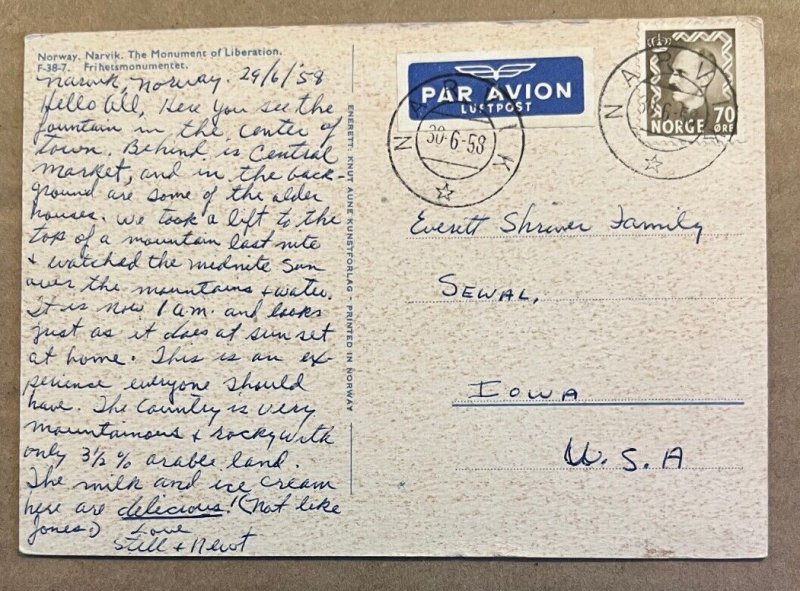 Norway. Narvik. The Monument of Liberation.
F-38-7. Frihetsmonumentet.
Narvik, Norway. 29/6/58
Hello All, Here you see the
fountain in the center of
town. Behind is Central
Market, and in the back-
ground are some of the older
houses. We took a lift to the
top of a mountain last nite
+ watched the mednite sun
over the mountains + water.
It is now 1 a.m. and looks
just as it does at sun set
at home. This is an ex-
perience everyone should
have. The Country is very
mountainous + rocky with
only 3½ % arable land.
The milk and ice cream
here are delecious! (Not like
Jones.) Love
Still + Newt
ENERETT: KNUT AUNE KUNSTFORLAG - PRINTED IN NORWAY
PAR AVION
LUFTPOST
NARVIK
30-6-58
NARVIK
NORGE 70
ØRE
Everett Shriver Family
SEWAL,
IOWA
U.S.A